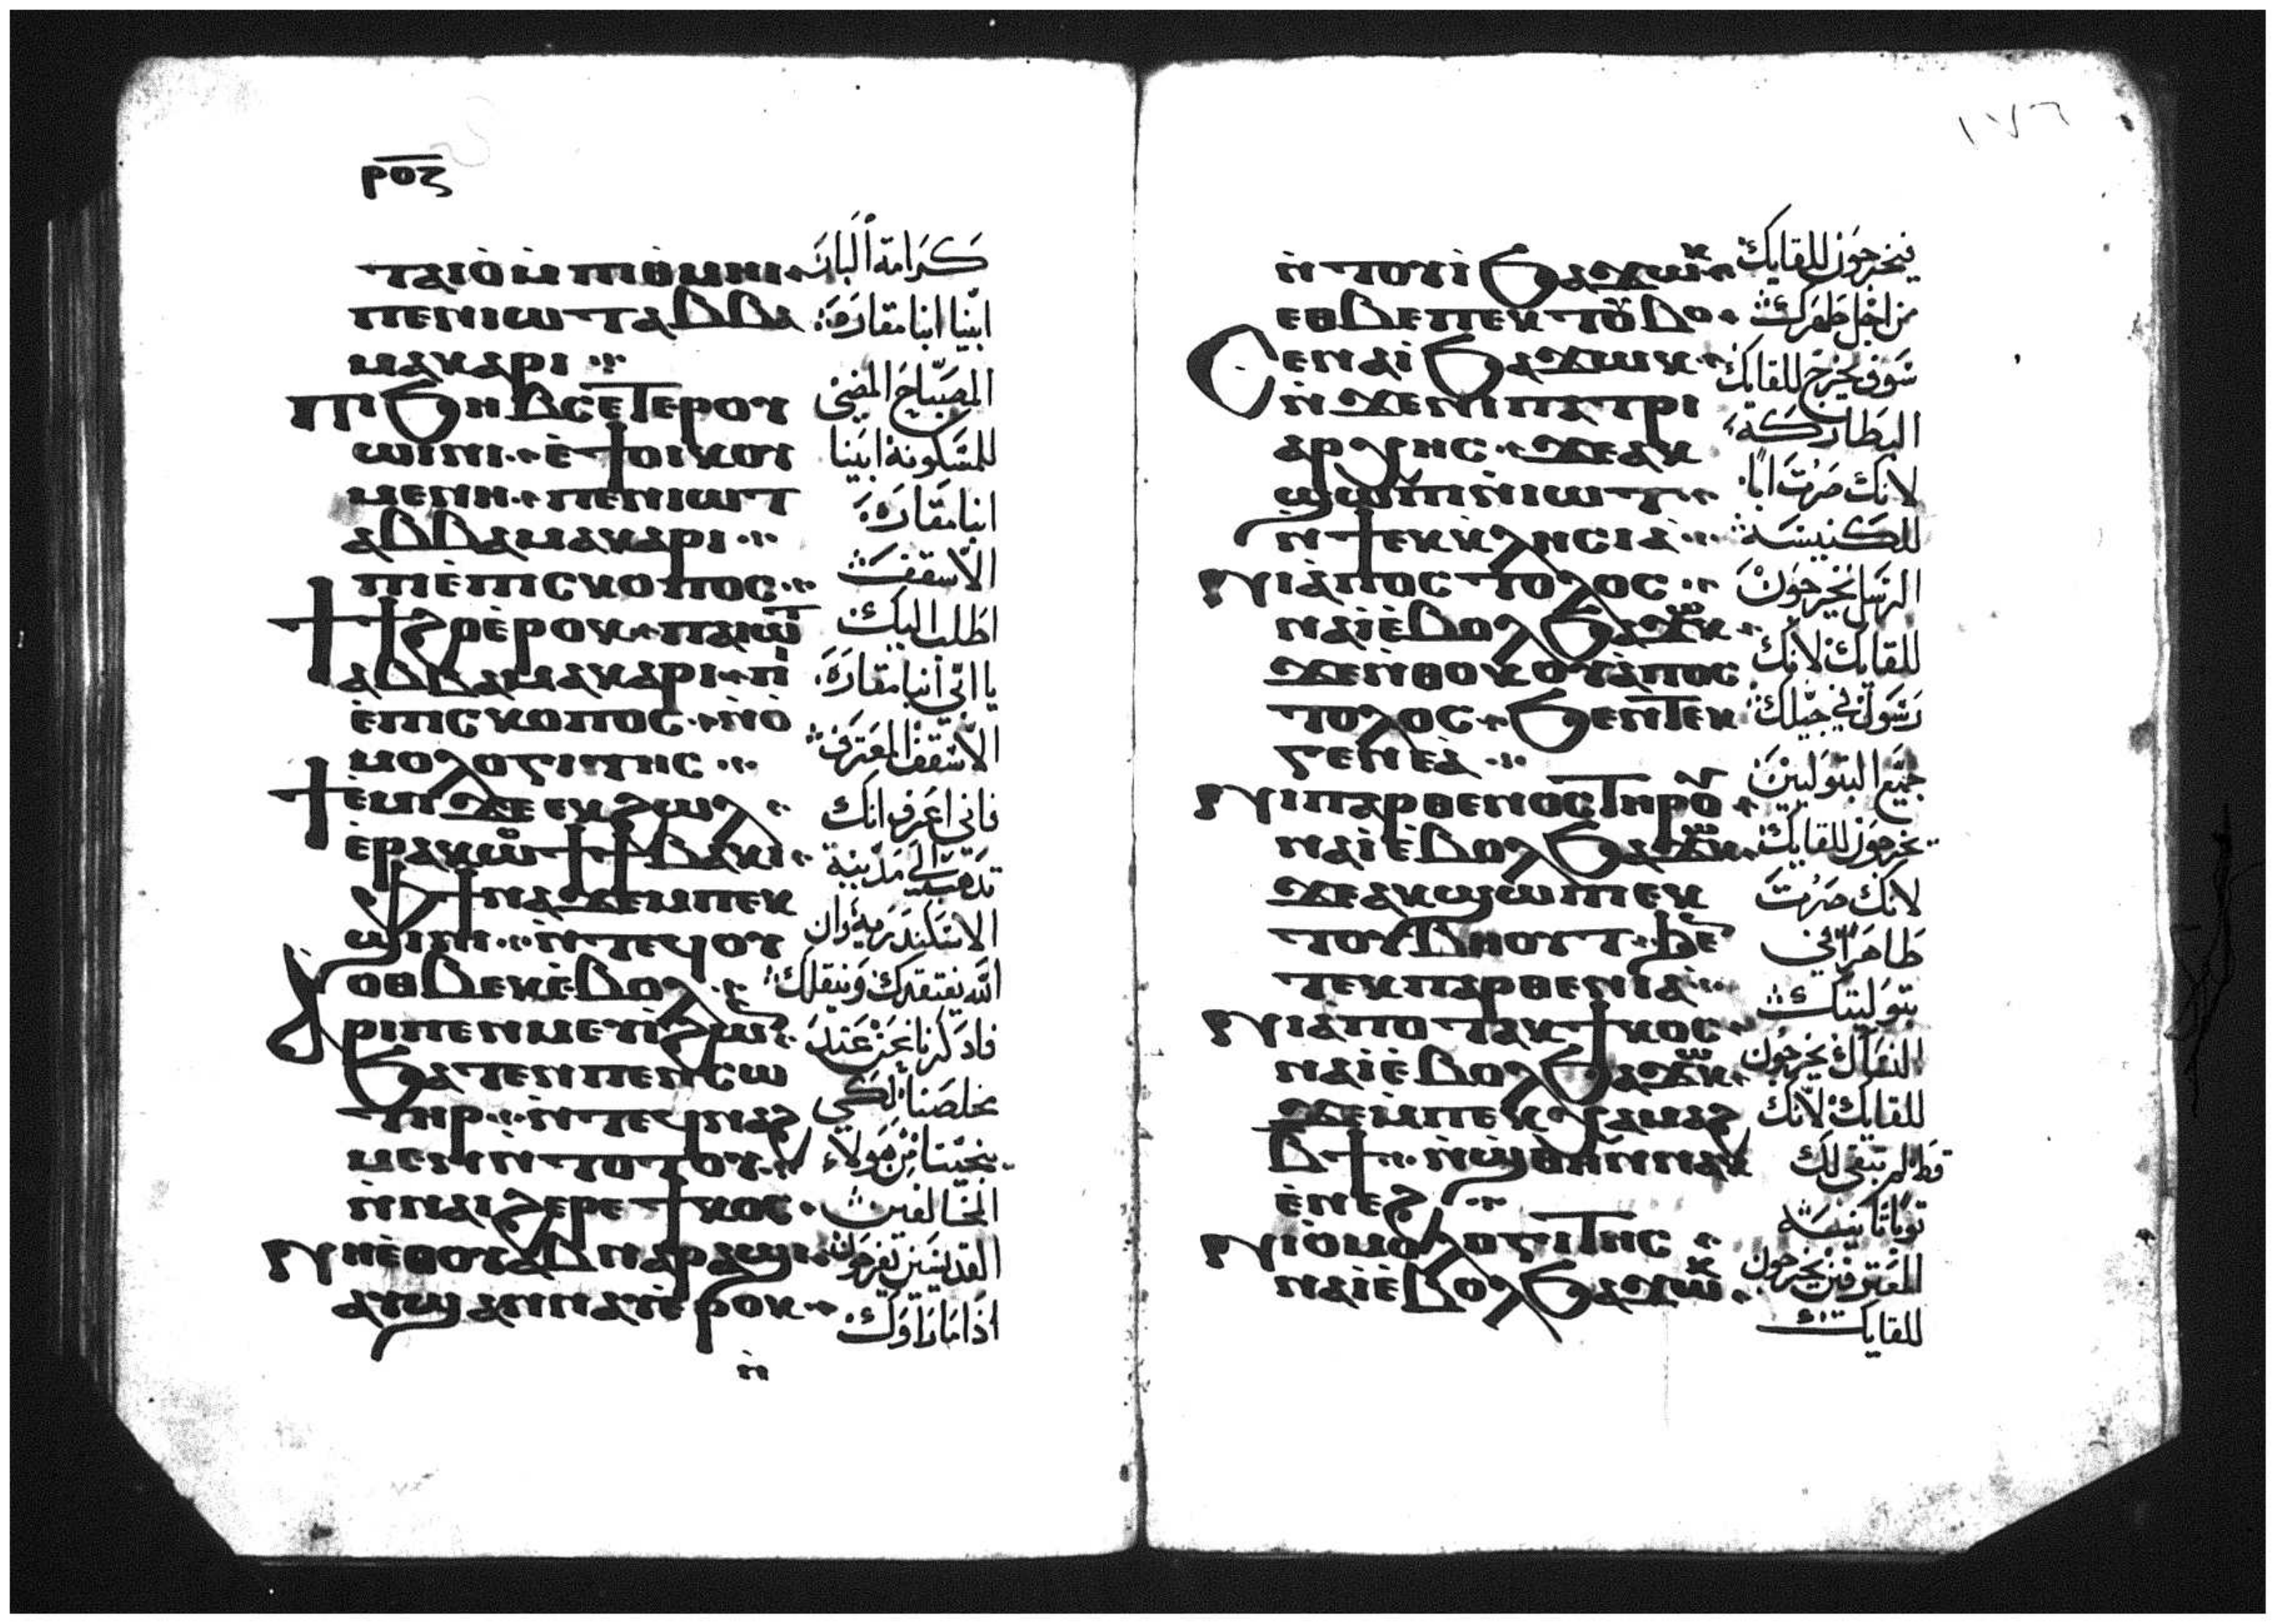 ⲣⲟⲍ
ⲧⲁⲓⲟ̀ ⲙ̀ⲡⲓⲑ̀ⲙⲏⲓ
ⲡⲉⲛⲓⲱⲧ ⲁⲃⲃⲁ
ⲙⲁⲕⲁⲣⲓ
ⲡⲓϧⲏⲃⲥ ⲉⲧⲉⲣⲟⲩ
ⲱⲓⲛⲓ ⲉ̀ϯⲟⲓⲕⲟⲩ
ⲙⲉⲛⲏ ⲡⲉⲛⲓⲱⲧ
ⲁⲃⲃⲁ ⲙⲁⲕⲁⲣⲓ
ⲡⲓⲉ̀ⲡⲓⲥⲕⲟⲡⲟⲥ
ϯϯϩⲟ ⲉ̀ⲣⲟⲕ ⲡⲁⲓⲱⲧ
ⲁⲃⲃⲁ ⲙⲁⲕⲁⲣⲓ ⲡⲓ
ⲉ̀ⲡⲓⲥⲕⲟⲡⲟⲥ ⲛ̀ⲟ̀
ⲙⲟⲗⲟⲅⲓⲧⲏⲥ
ϯⲉ̀ⲙⲓ ϫⲉ ⲉⲕϩⲱⲗ
ⲉ̀ⲣⲁⲕⲟϯ ϯⲃⲁⲕⲓ
ⲫϯ ⲛⲁϫⲉⲙⲡⲉⲕ
ϣⲓⲛⲓ ⲛ̀ⲧⲉϥⲟⲩ
ⲟⲑⲃⲉⲕ ⲉ̀ⲃⲟⲗ
ⲁⲣⲓⲡⲉⲛⲙⲉⲩⲓ̀ ϩⲱⲛ
ϧⲁⲧⲉⲛ ⲡⲉⲛⲥⲱ
ⲧⲏⲣ ⲛ̀ⲧⲉϥⲛⲁϩ
ⲙⲉⲛ ⲛ̀ⲧⲟⲧⲟⲩ
ⲛ̀ⲛⲁⲓϩⲉⲣⲉϯⲕⲟⲥ
ⲛⲏⲉ̀ⲑⲟⲩⲁⲃ ⲛⲁⲣⲁϣⲓ
ⲁⲩϣⲁⲛⲛⲁⲩ ⲉ̀ⲣⲟⲕ
ⲛ̀
كَرَامَة البار
ابينا انبا مقاره
المصباح المضي
للمسكونة ابينا
انبا مقاره
الاسقف
اطلب اليك
يا ابي انبا مقاره
الاسقف المعترف
فاني اعرف انك
تدهب الي مدينة
الاسكندرية وان
الله يفتقدك وينقلك
فادكرنا نحن عند
مخلصنا لكي
ينجينا من هولاء
المخالفين
القديسين يفرحون
اذا ما راوك
١٧٦
ⲛ̀ⲧⲟⲩⲓ̀ ϧⲁϫⲱⲕ
ⲉⲑⲃⲉ ⲡⲉⲕⲧⲟⲩⲃⲟ
ⲥⲉⲛⲁⲓ̀ ϧⲁϫⲱⲕ
ⲛ̀ϫⲉⲛⲓⲡⲁⲧⲣⲓ
ⲁⲣⲭⲏⲥ ϫⲉ ⲁⲕ
ϣⲱⲡⲓ ⲛ̀ⲓⲱⲧ
ⲛ̀ϯⲉⲕⲕⲗⲏⲥⲓⲁ̀
ⲛⲓⲁ̀ⲡⲟⲥⲧⲟⲗⲟⲥ
ⲛⲁⲓ̀ ⲉ̀ⲃⲟⲗ ϧⲁϫⲱⲕ
ϫⲉ ⲛ̀ⲑⲟⲕ ⲟⲩⲁ̀ⲡⲟⲥ
ⲧⲟⲗⲟⲥ ϧⲉⲛ ⲧⲉⲕ
ⲅⲉⲛⲉⲁ̀
ⲛⲓⲡⲁⲣⲑⲉⲛⲟⲥ ⲧⲏⲣⲟⲩ
ⲛⲁⲓ̀ ⲉ̀ⲃⲟⲗ ϧⲁϫⲱⲕ
ϫⲉ ⲁⲕϣⲱⲡ ⲉⲕ
ⲧⲟⲩⲃⲏⲟⲩⲧ ϧⲉⲛ
ⲧⲉⲕⲡⲁⲣⲑⲉⲛⲓⲁ̀
ⲛⲓⲁ̀ⲡⲟⲧⲁⲕϯⲕⲟⲥ
ⲛⲁⲓ̀ ⲉ̀ⲃⲟⲗ ϧⲁϫⲱⲕ
ϫⲉ ⲙ̀ⲡⲉⲕⲭⲁ ⲙⲁϩ
ⲃϯ ⲛ̀ϣⲑⲏⲛ ⲛⲁⲕ
ⲉ̀ⲛⲉϩ
ⲛⲓⲟ̀ⲙⲟⲗⲟⲅⲓⲧⲏⲥ
ⲛⲁⲓ̀ ⲉ̀ⲃⲟⲗ ϧⲁϫⲱⲕ
فيخرجون للقايك
من اجل طهرك
سوف يخرج للقايك
البطاركة
لانك صرت ابا
للكنيسة
الرسل يخرجون
للقايك لانك
رسول في جيلك
جميع البتوليين
يخرجون للقايك
لانك صرت
طاهرا في
بتوليتك
النساك يخرجون
للقايك لانك
قط لم تبقي لك
توبا تانيه
المعترفين يخرجون
للقايك